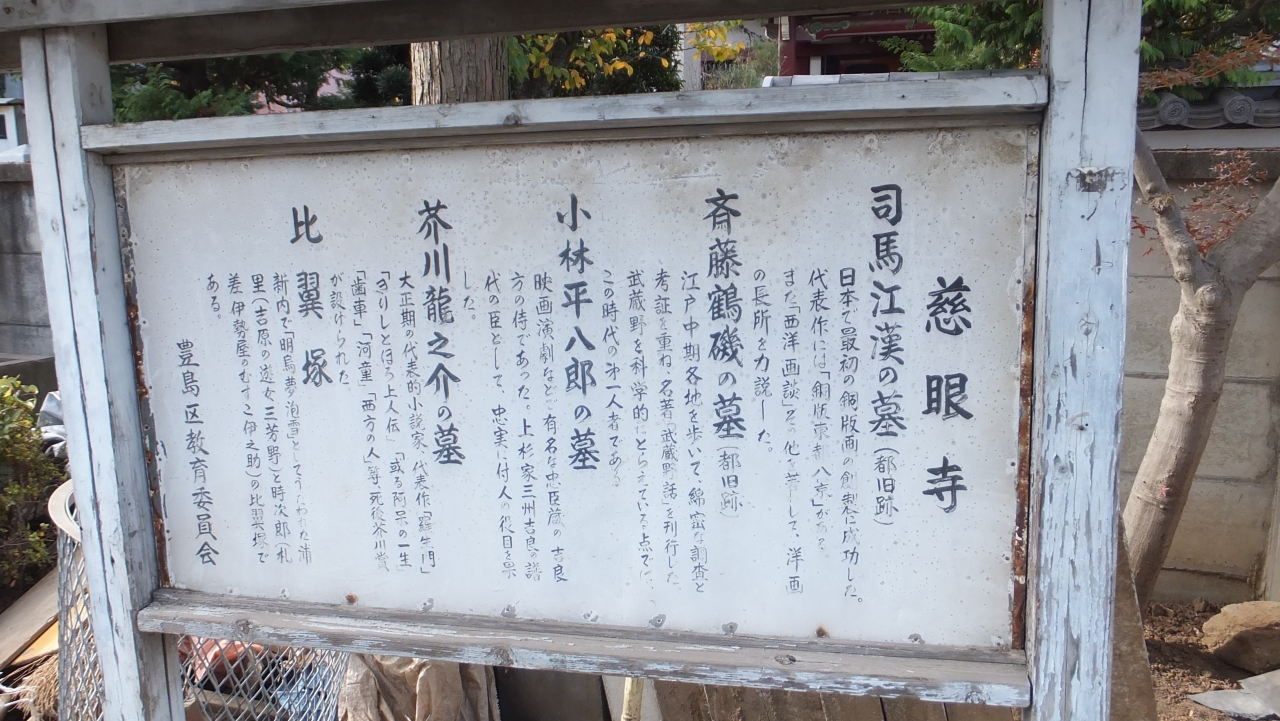 慈眼寺
司馬江漢の墓(都旧跡)
日本で最初の銅版画の創製に成功した。
代表作には「銅版東 八京」がある
また「西洋画談」その他を著して、洋画
の長所を力説した。
斎藤鶴磯の墓(都旧跡)
江戸中期各地を歩いて、綿密な調査と
考証を重ね、名著「武蔵野話」を刊行した
武蔵野を科学的にとらえている点では、
この時代の第一人者である
小林平八郎の墓
映画演劇などで有名な忠臣蔵の吉良
方の侍であった。上杉家三州吉良の譜
代の臣として、忠実に付人の役目を果
した。
芥川龍之介の墓
大正期の代表的小説家、代表作「羅生門」
「きりしとほろ上人伝」「或る阿呆の一生
「歯車」「河童」「西方の人」等死後芥川賞
が設けられた
比翼塚
新内で「明烏夢泡雪」としてうたわれた浦
里(吉原の遊女三芳野)と時次郎(札
差伊勢屋のむすこ伊之助)の比翼塚で
ある。
豊島区教育委員会